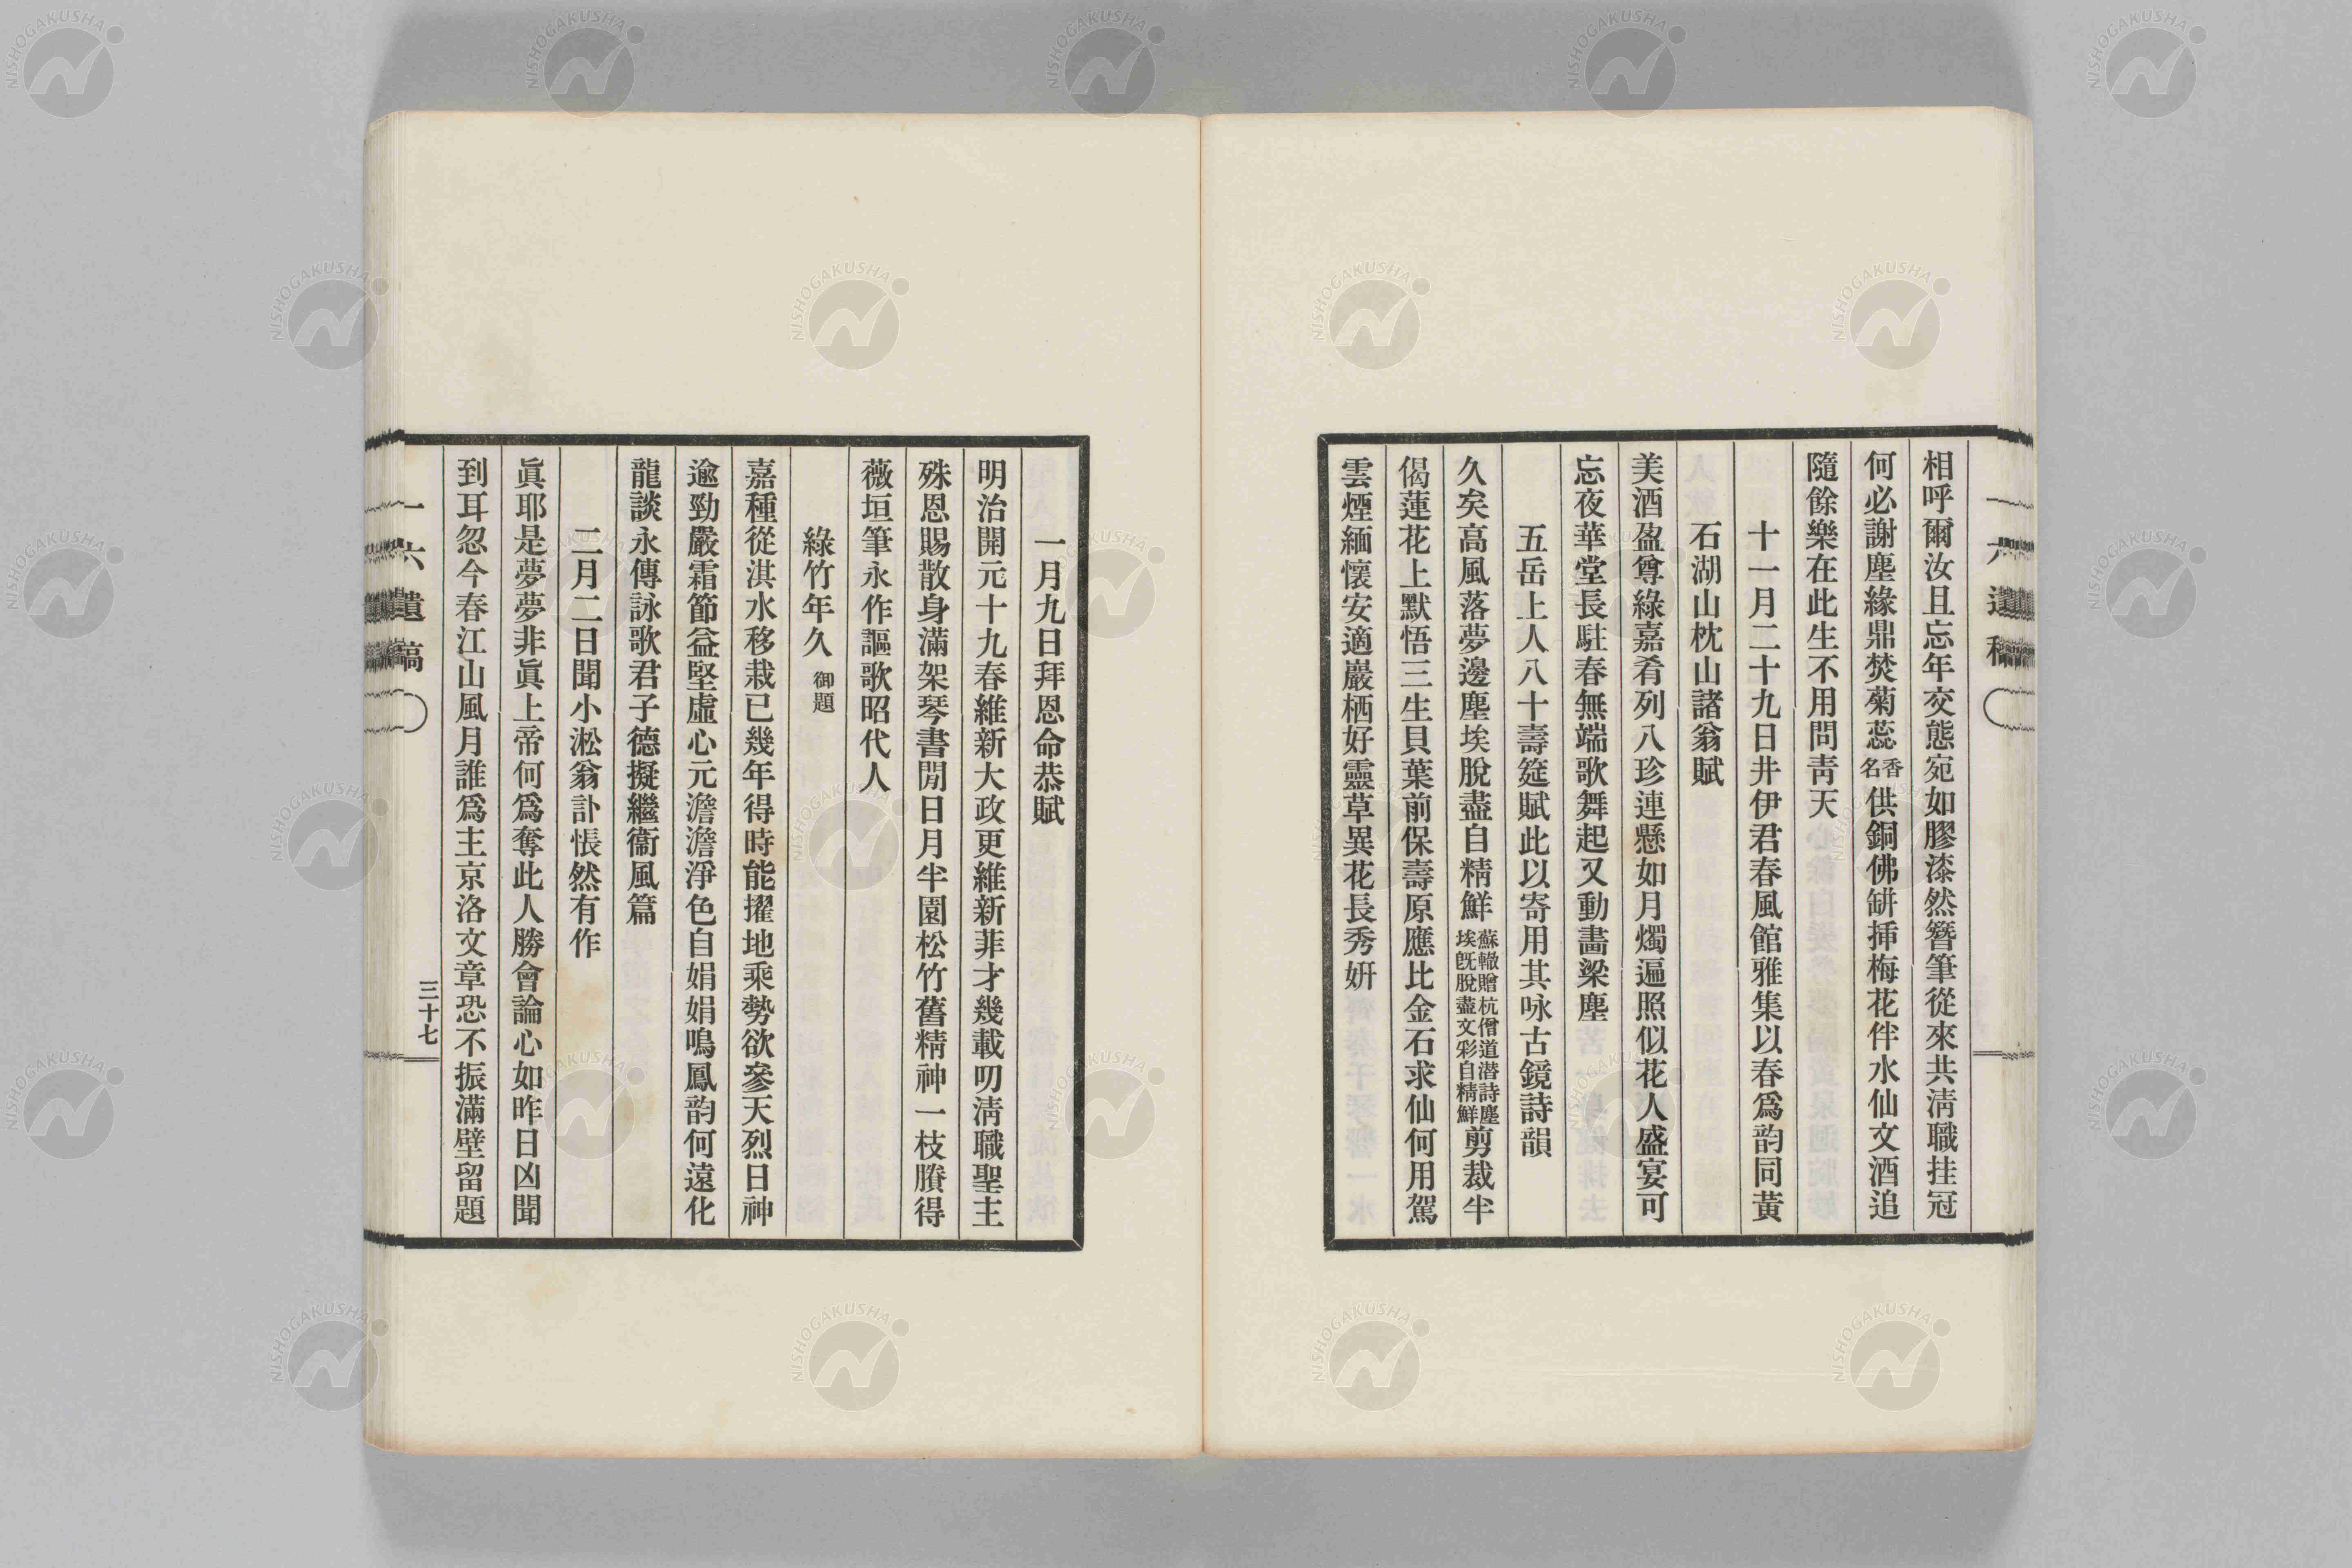 相呼爾汝且忘年交態宛如膠漆然簪筆從來共淸職挂冠
何必謝塵緣鼎焚菊蕊香名供銅佛缾揷梅花伴水仙文酒追
隨餘樂在此生不用問靑天
十一月二十九日井伊君春風館雅集以春爲韵同黃
石湖山枕山諸翁賦
美酒盈尊綠嘉肴列八珍連懸如月燭遍照似花人盛宴可
忘夜華堂長駐春無端歌舞起又動畵梁塵
五岳上人八十壽筵賦此以寄用其咏古鏡詩韻
久矣高風落夢邊塵埃脫盡自精鮮蘇轍贈杭僧道潛詩塵埃旣脫盡文彩自精鮮剪裁半
偈蓮花上默悟三生貝葉前保壽原應比金石求仙何用駕
雲煙緬懷安適巖栖好靈草異花長秀姸
一月九日拜恩命恭賦
明治開元十九春維新大政更維新菲才幾載叨淸職聖主
殊恩賜散身滿架琴書閒日月半園松竹舊精神一枝賸得
薇垣筆永作謳歌昭代人
綠竹年久 御題
嘉種從淇水移栽已幾年得時能擢地乘勢欲參天烈日神
逾勁嚴霜節益堅虛心元澹澹淨色自娟娟鳴鳳韵何遠化
龍談永傳詠歌君子德擬繼衞風篇
二月二日聞小淞翁訃悵然有作
眞耶是夢夢非眞上帝何爲奪此人勝會論心如昨日凶聞
到耳忽今春江山風月誰爲主京洛文章恐不振滿壁留題
一六遺稿
三十七